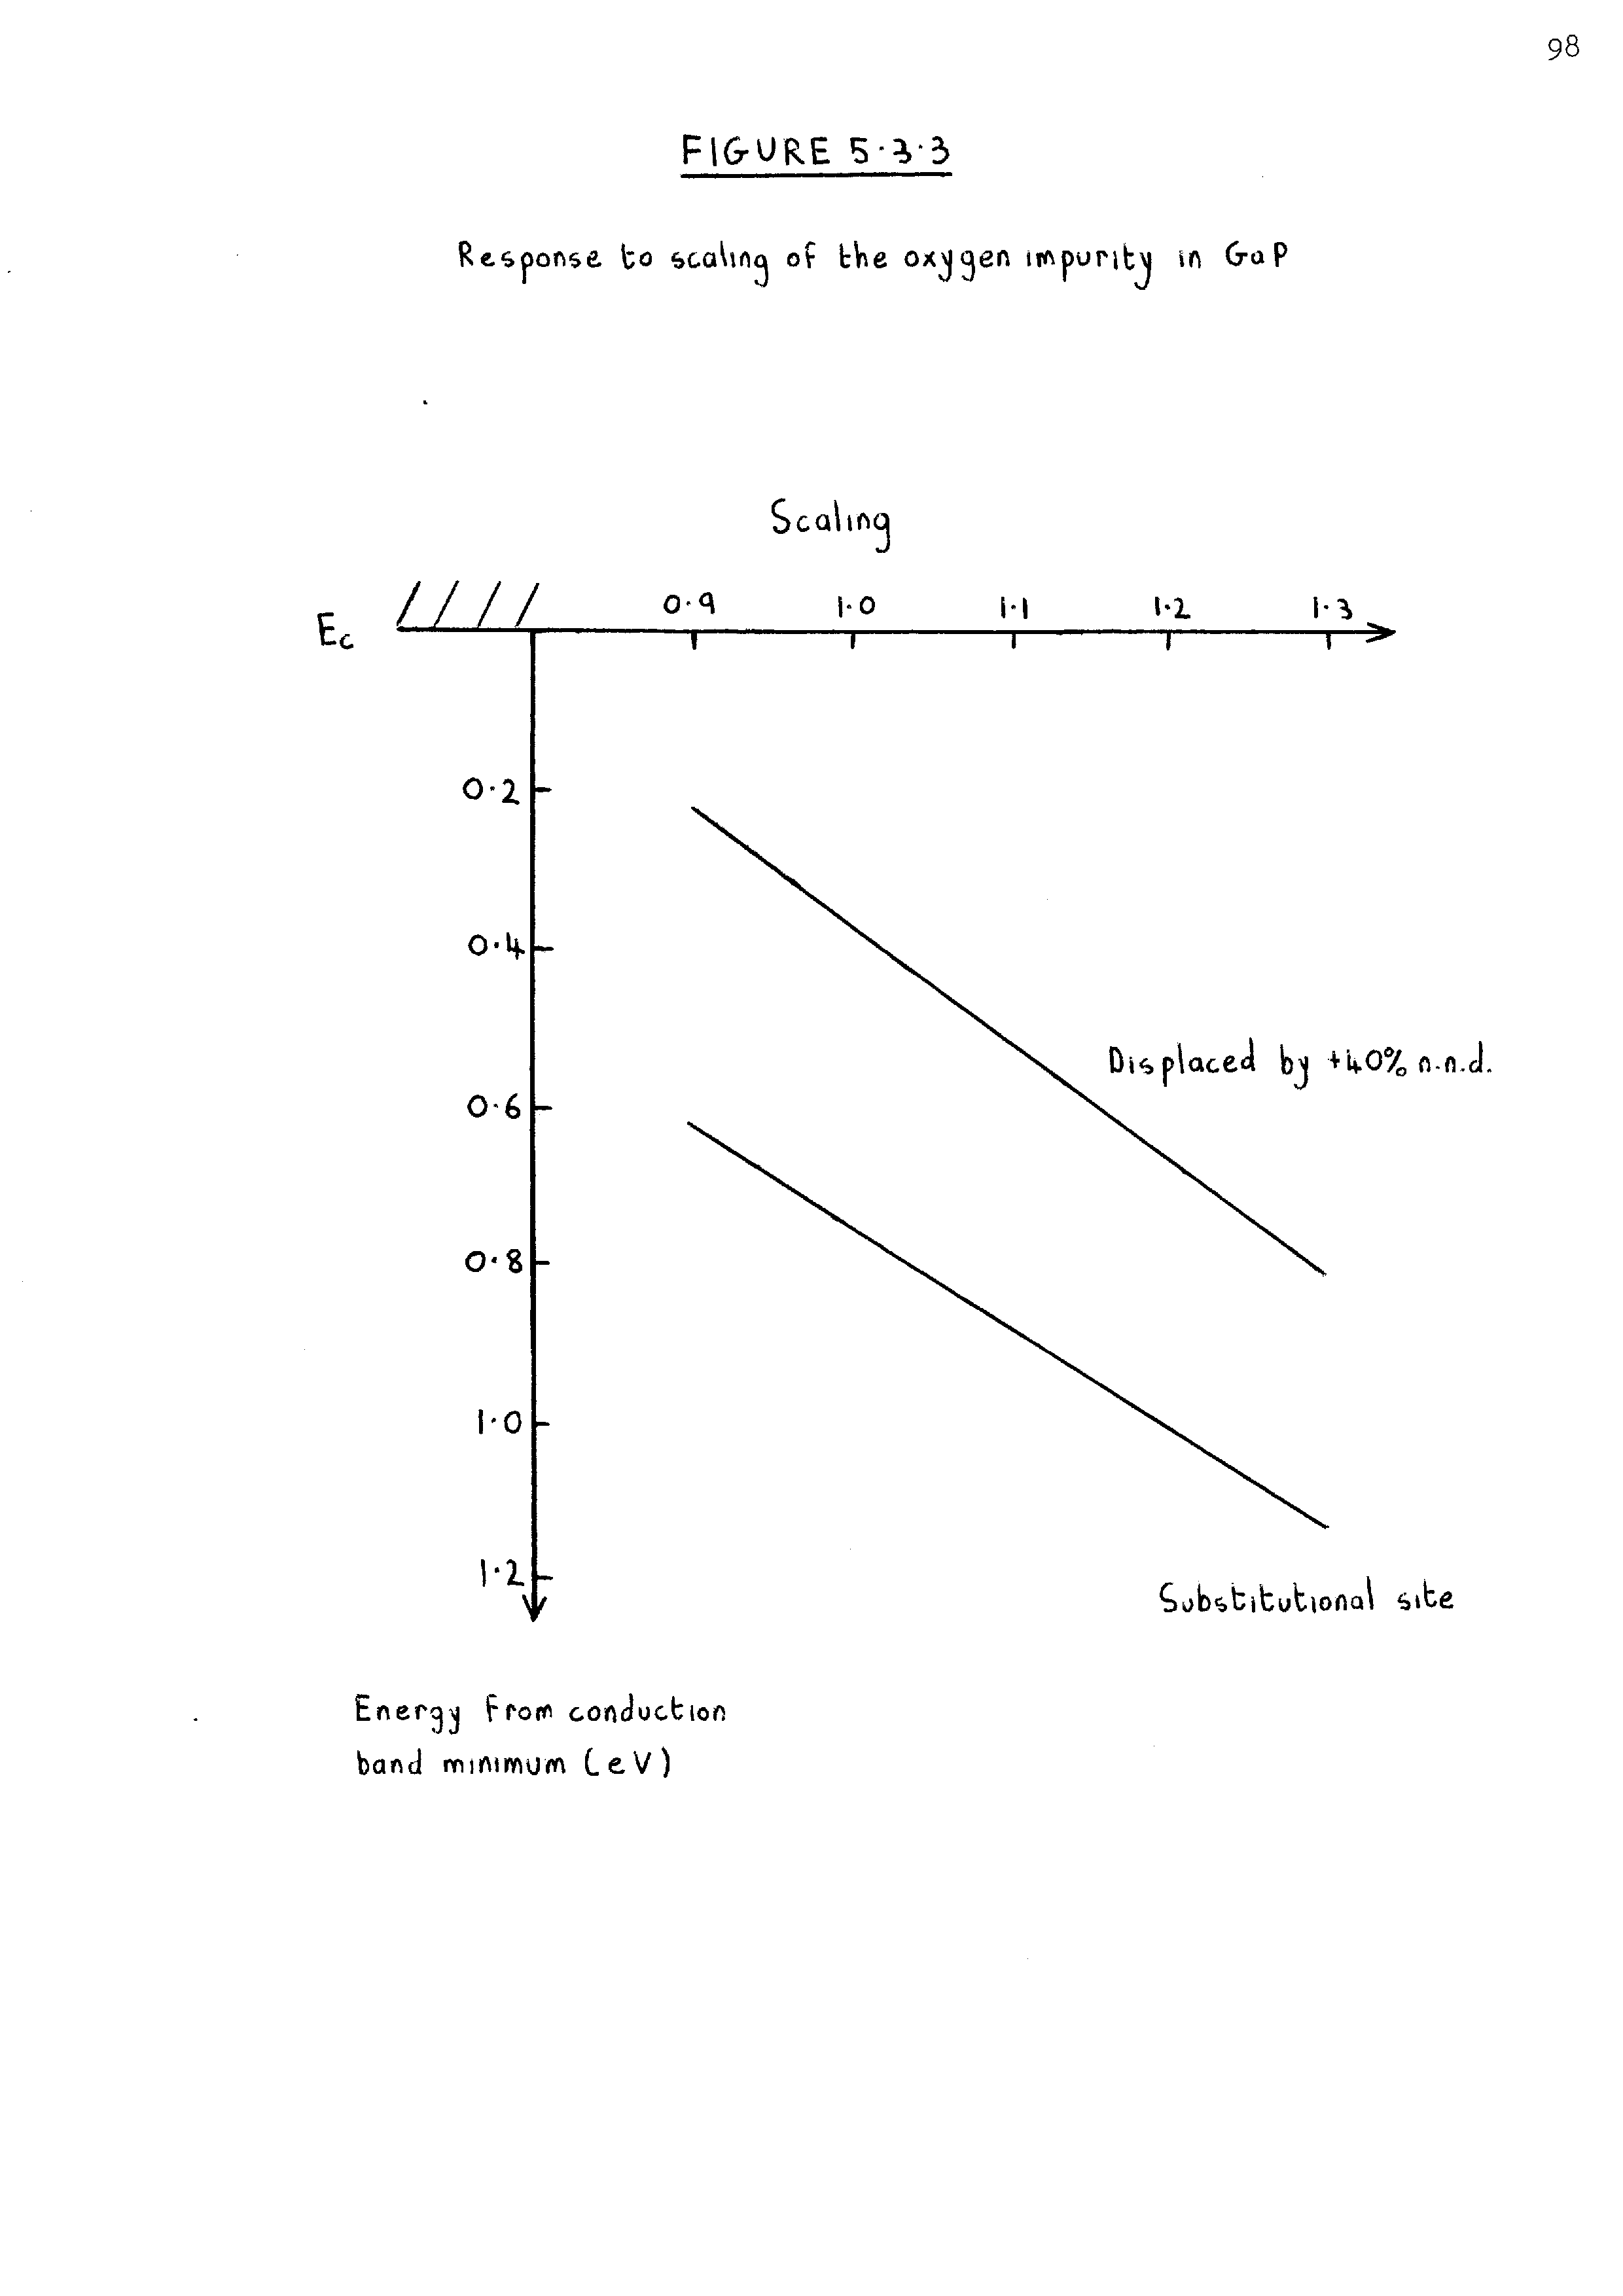 98
FIGURE 5·3·3
Response to scaling of the oxygen impurity in GaP
Scaling
Ec
0·9 1·0 1·1 1·2 1·3
0·2
0·4
Displaced by +40% n.n.d.
0·6
0·8
1·0
1·2
Substitutional site
Energy from conduction
band minimum (eV)